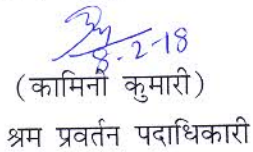 8-2-18
(कामिनी कुमारी)
श्रम प्रवर्तन पदाधिकारी